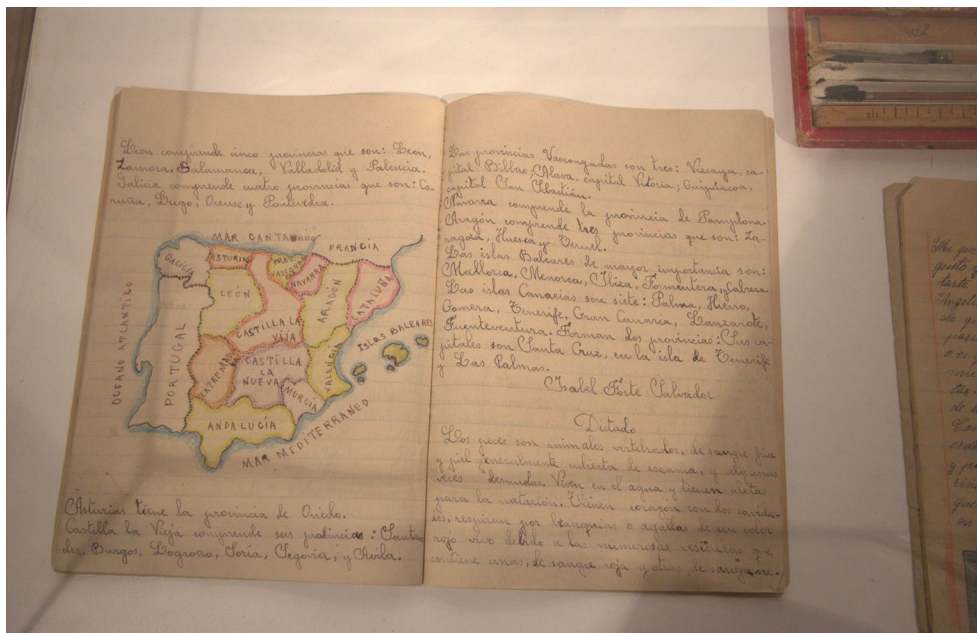 León comprende cinco provincias que son: León,
Zamora, Salamanca, Valladolid y Palencia.
Galicia comprende cuatro provincias que son: Co-
ruña, Lugo, Orense y Pontevedra.
MAR CANTABRICO
FRANCIA
GALICIA
ASTURIAS
PROV.
VASCONG
NAVARRA
LEÓN
ARAGÓN
CATALUÑA
CASTILLA LA
VIEJA
ISLAS BALEARES
OCEANO ATLANTICO
PORTUGAL
EXTREMAD
CASTILLA
LA
NUEVA
VALENCIA
MURCIA
ANDALUCÍA
MAR MEDITERRANEO
Asturias tiene la provincia de Oviedo.
Castilla la Vieja comprende seis provincias: Santan-
der, Burgos, Logroño, Soria, Segovia, y Avila.
Las provincias Vascongadas son tres: Vizcaya, ca-
pital Bilbao; Alava, capital Vitoria; Guipúzcoa,
capital San Sebastián.
Navarra comprende la provincia de Pamplona.
Aragón comprende tres provincias que son: Za-
ragoza, Huesca y Teruel.
Las islas Baleares de mayor importancia son:
Mallorca, Menorca, Ibiza, Formentera, Cabrera.
Las islas Canarias son siete: Palma, Hierro,
Gomera, Tenerife, Gran Canaria, Lanzarote,
Fuenteventura. Forman dos provincias: Sus ca-
pitales son Santa Cruz, en la isla de Tenerife
y Las Palmas.
Isabel Forte Salvador
Dictado
Los peces son animales vertebrados, de sangre fria
y piel generalmente cubierta de escama, y algunas
veces desnudas. Viven en el agua y tienen aletas
para la natación. Tienen corazon con dos cavida-
des, respiran por branquias o agallas de un color
rojo vivo debido a las numerosas que
contiene unas, de sangre roja y otras, de sangre ne-